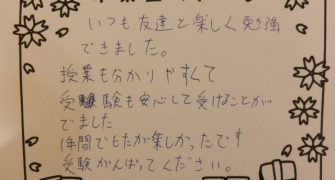 いつも友達と楽しく勉強
できました。
授業も分かりやすくて
受験も安心して受けることが
でました
1年間でしたが楽しかったです
受験がんばってください。